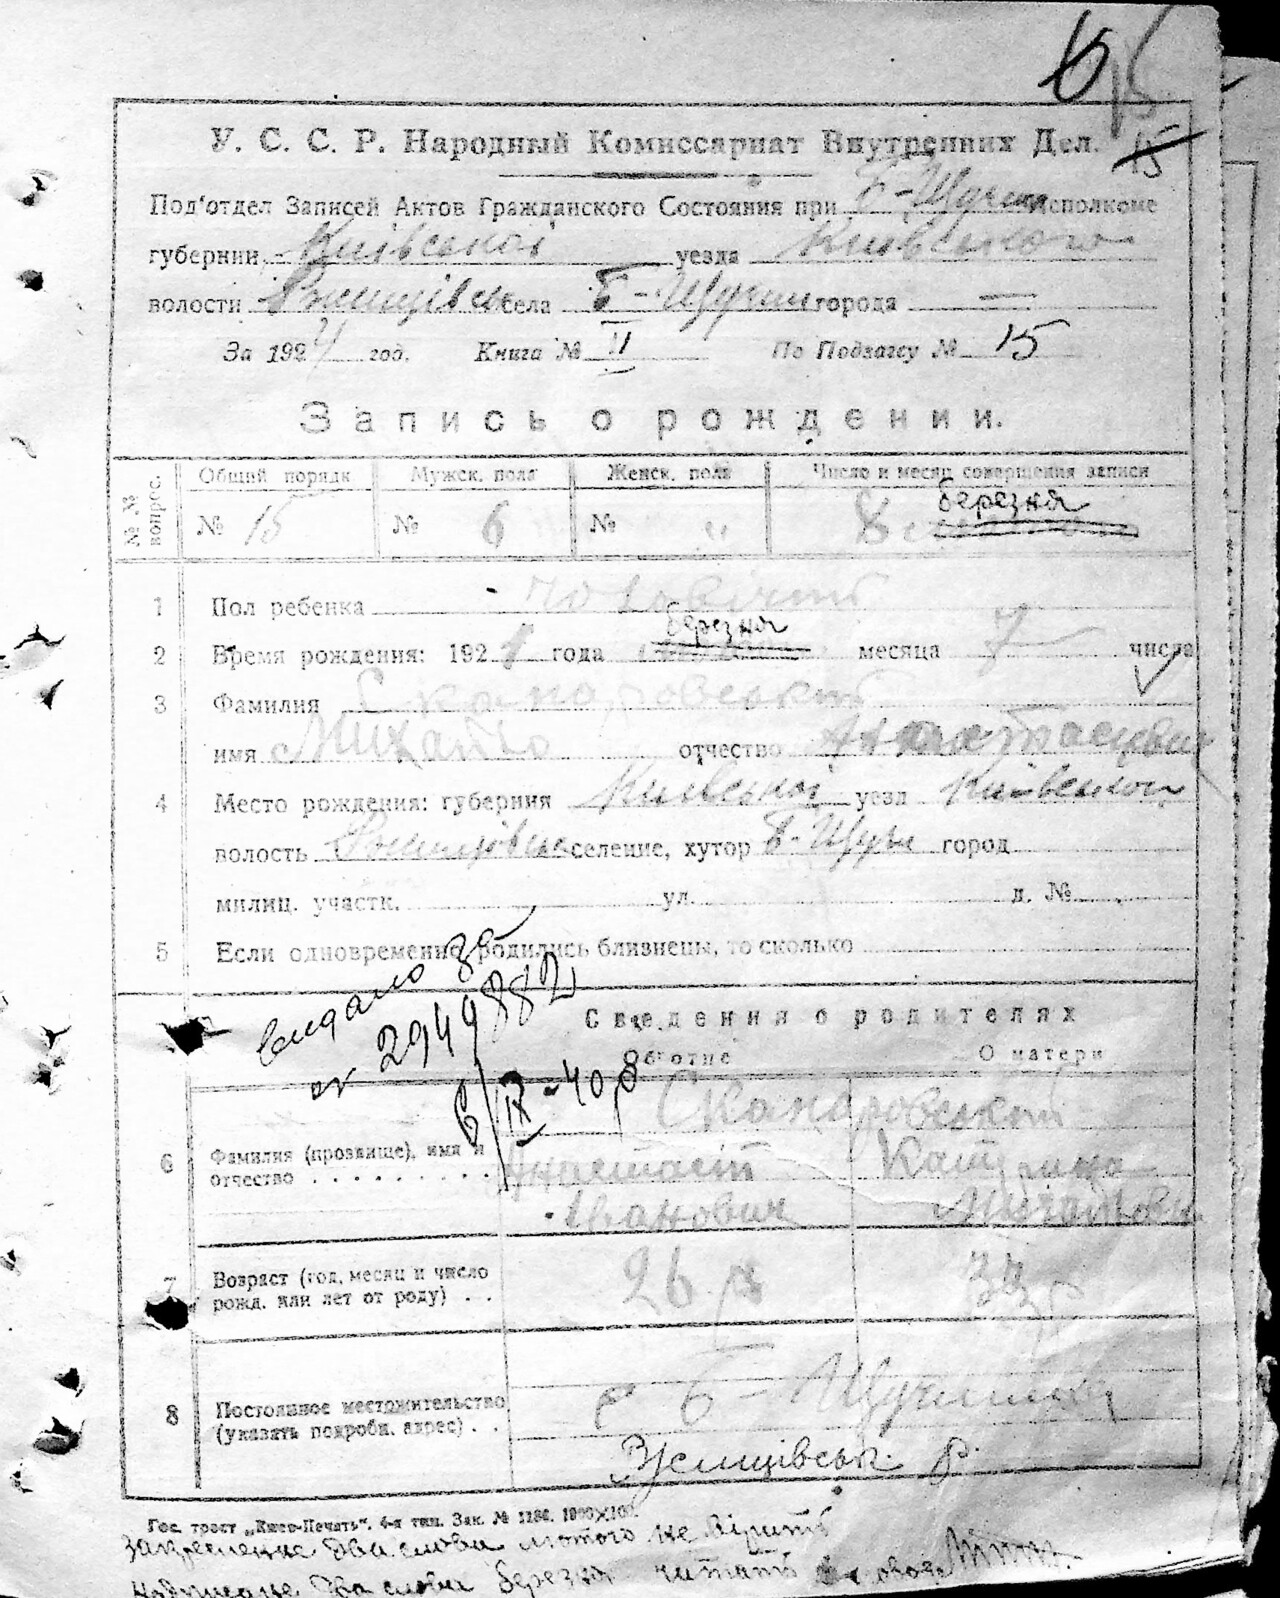 15
15
У. С. С. Р. Народный Комиссариат Внутренних Дел.
Под'отдел Записей Актов Гражданского Состояния при Б-Щучин исполкоме
губернии Київської уезда Київського
волости Ржищівськ села Б-Щучин города —
За 1924 год. Книга № II По Подзагсу № 15
Запись о рождении.
№ № вопрос. Общий порядк Мужск. пола Женск. пола Число и месяц совершения записи
березня
№ 15 № 6 № " 8
1 Пол ребенка чоловічий
березня
2 Время рождения: 192 года месяца 7 числа
3 Фамилия
имя Михайло отчество
4 Место рождения: губерния Київської уезд Київського
волость Ржищівськ селение, хутор Б-Щучин город
милиц. участк. ул. д. №
5 Если одновременно родились близнецы, то сколько
видано
2949882
6/IX-40р
Сведения о родителях
Об отце О матери
6 Фамилия (прозвище), имя и
отчество
Анастасій Катерина
Іванович
7 Возраст (год, месяц и число
рожд. или лет от роду) . .
26 р
8 Постоянное местожительство
(указать подробн. адрес) . .
с Б-Щучинка
Ржищівськ. р.
Гос. трест „Киев-Печать“. 4-я тип. Зак. № 1186. 1000×100.
Закреслене два слова лютого не вірить
Надписане два слова березня читать